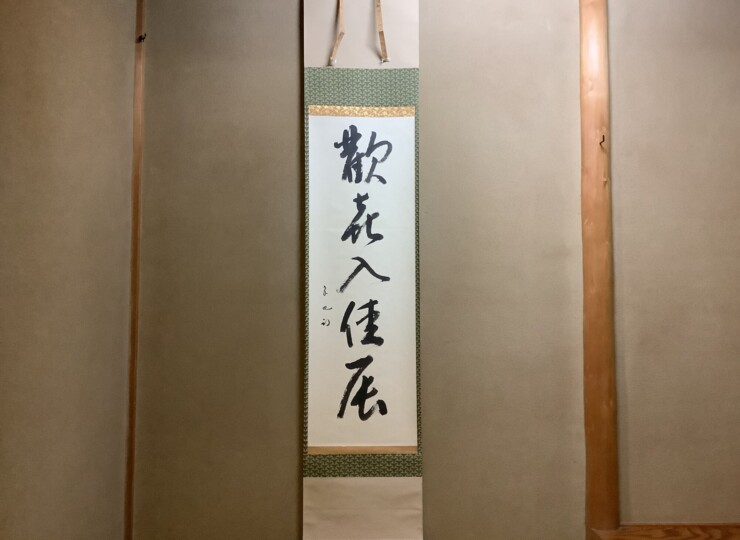 歡喜入佳辰